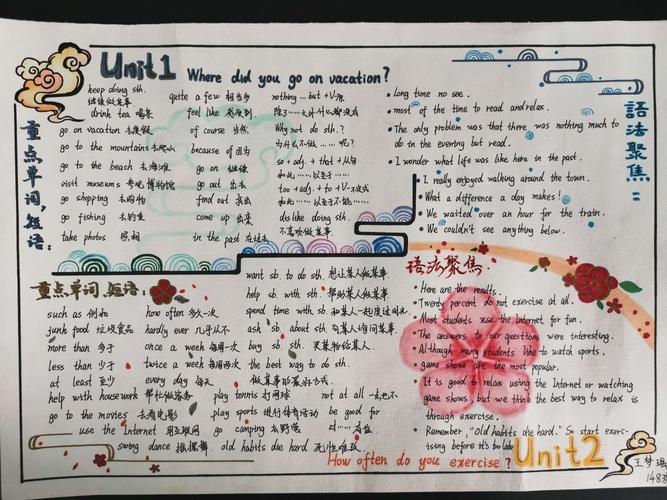 Unit1 Where did you go on vacation?
重点单词,短语:
keep doing sth.
继续做某事
drink tea 喝茶
go on vacation 去度假
go to the mountains 去爬山
go to the beach 去海滩
visit museums 参观博物馆
go shopping 去购物
go fishing 去钓鱼
take photos 照相
quite a few 相当多
feel like 感受到
of course 当然
because of 因为
go on 继续
go out 出去
find out 找出
come up 出来
in the past 在过去
nothing ... but + V-原
除了……之外什么都没有
Why not do sth.?
为什么不做……呢?
so + adj. + that + 从句
如此……以至于……
too + adj. + to + V-
如此……以至于不能……
dislike doing sth.
不喜欢做某事
語法聚焦:
Long time no see.
most of the time to read and relax.
The only problem was that there was nothing much to
do in the evening but read.
I wonder what life was like here in the past.
I really enjoyed walking around the town.
What a difference a day makes!
We waited over an hour for the train.
We couldn't see anything below.
重点单词、短语:
such as 例如
junk food 垃圾食品
more than 多于
less than 少于
at least 至少
help with housework 帮忙做家务
go to the movies 去看电影
use the Internet 用互联网
swing dance 摇摆舞
how often 多久一次
hardly ever 几乎从不
once a week 每周一次
twice a week 每周两次
every day 每天
play tennis 打网球
play sports 进行体育活动
go camping 去野营
old habits die hard 恶习难改
want sb. to do sth. 想让某人做某事
help sb. with sth. 帮助某人做某事
spend time with sb. 和某人一起度过时光
ask sb. about sth. 向某人询问某事
buy sb. sth. 买某物给某人
the best way to do sth.
做某事的最好方式
not at all 一点也不
be good for
对……有益
语法聚焦
Here are the results.
Twenty percent do not exercise at all.
Most students use the Internet for fun.
The answers to our questions were interesting.
Although many students like to watch sports,
game shows are the most popular.
It is good to relax using the Internet or watching
game shows but we think the best way to relax is
through exercise.
Remember, "Old habits die hard." So start exerc-
ising before it's too late
How often do you exercise? Unit2
王梦